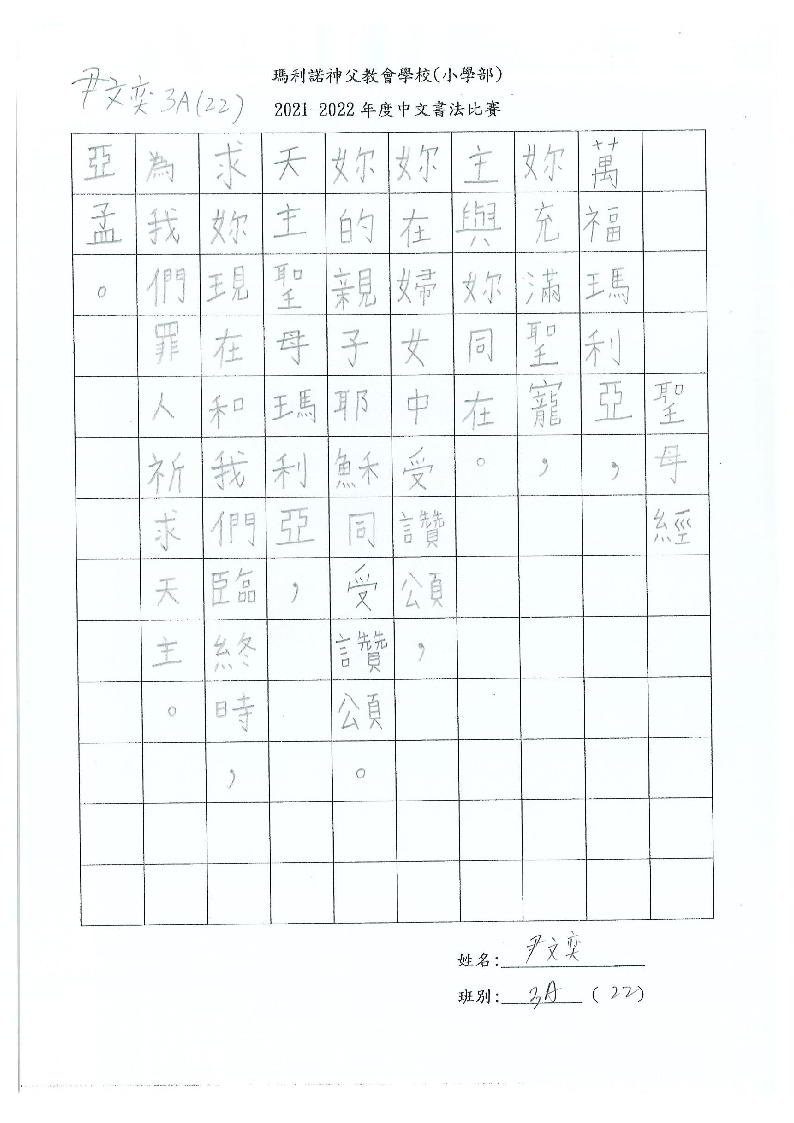 尹文奕 3A(22)
瑪利諾神父教會學校(小學部)
2021 2022 年度中文書法比賽
聖母經
萬福瑪利亞,
妳充滿聖寵,
主與妳同在。
妳在婦女中受讚頌,
妳的親子耶穌同受讚頌。
天主聖母瑪利亞,
求妳現在和我們臨終時,
為我們罪人祈求天主。
亞孟。
姓名:尹文奕
班別:3A (22)